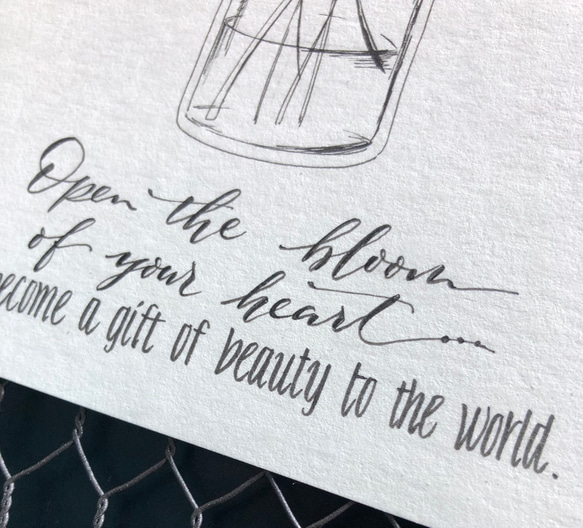 Open the bloom
of your heart...
ecome a gift of beauty to the world.